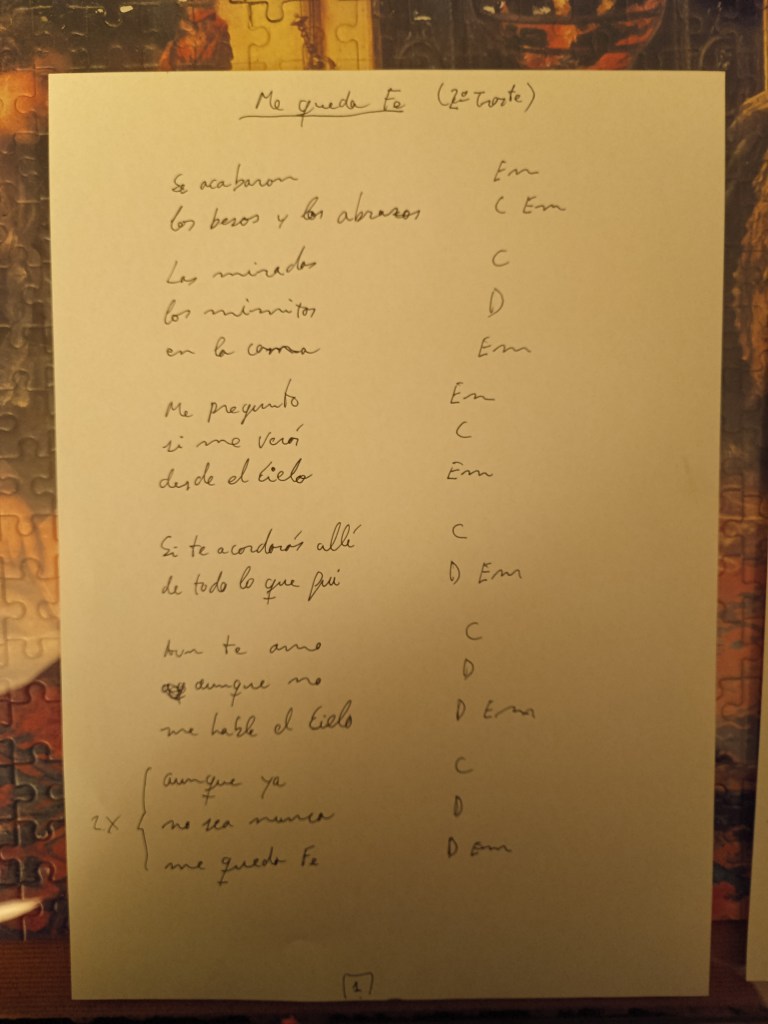 Me queda Fe (2º Traste)
Se acabaron Em
los besos y los abrazos C Em
Las miradas C
los mimitos D
en la cama Em
Me pregunto Em
si me verás C
desde el cielo Em
Si te acordarás allí C
de todo lo que fui D Em
Aun te amo C
aunque no D
me hable el cielo D Em
aunque ya C
2X no sea nunca D
me queda Fe D Em
1